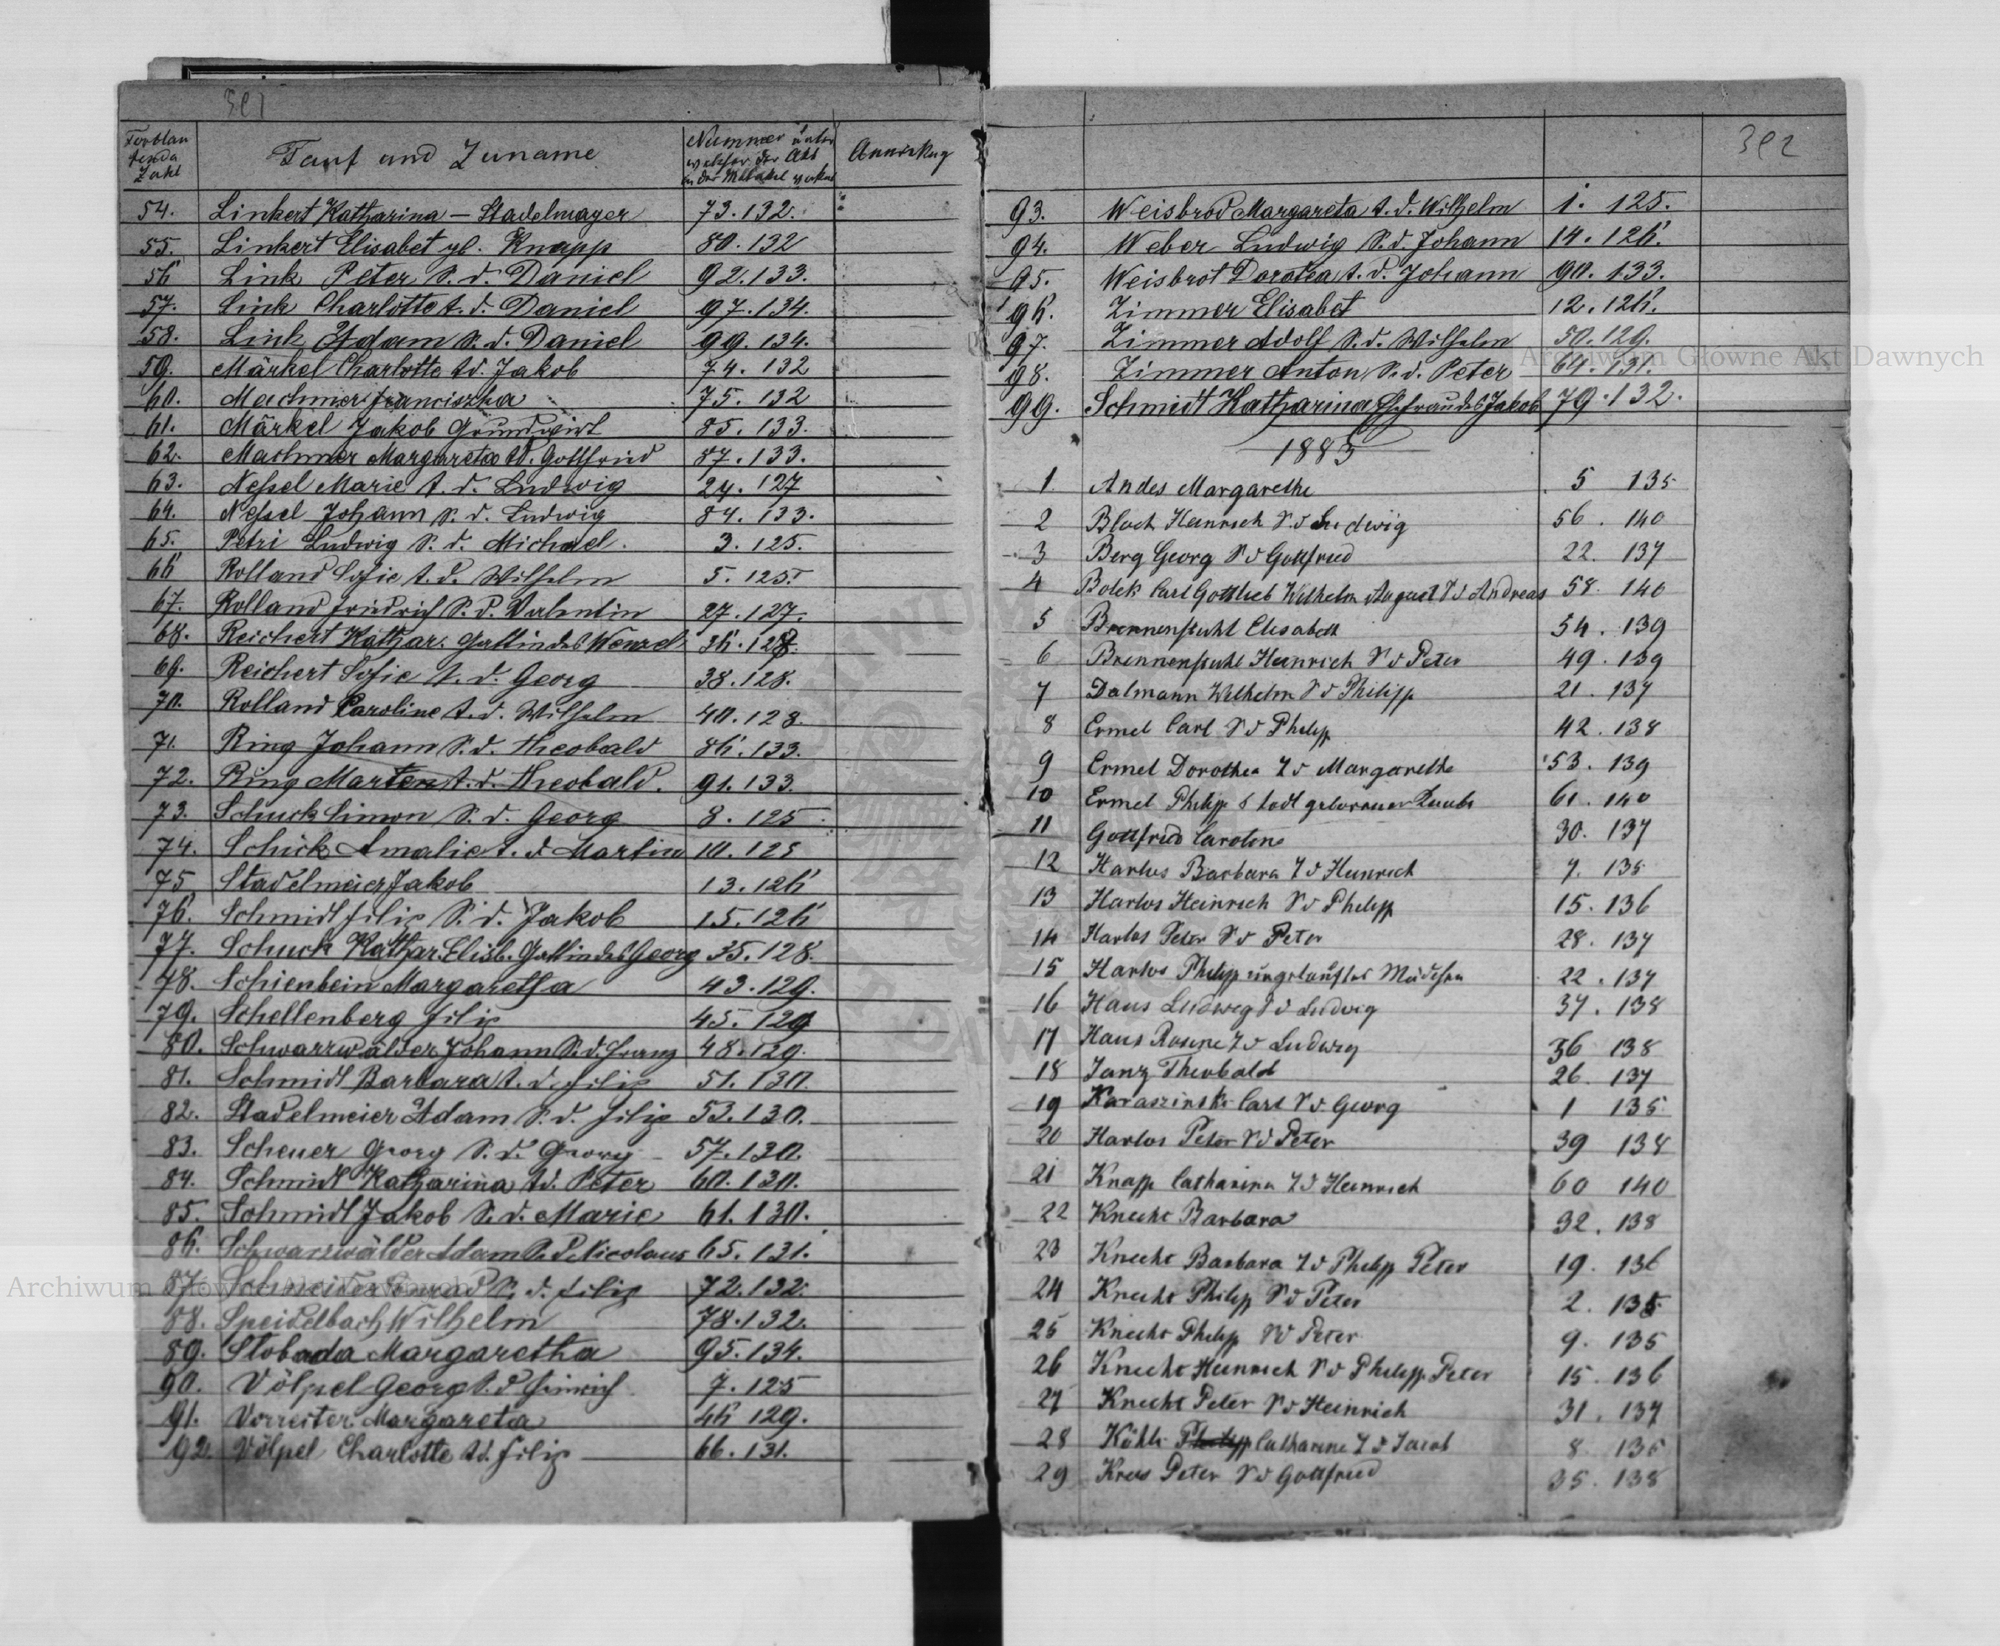 391
Fortlau
fende
Zahl
Tauf und Zuname
Nummer unter
welcher der Akt
in der Matrikel
Anmerkug
54. Linkert Katharina – Stadelmayer 73.132.
55. Linkert Elisabet gb. Knapp 80.132
56 Link Peter S. d. Daniel 92.133.
57. Link Charlotte t. d. Daniel 97.134.
58. Link Adam S. d. Daniel 99.134.
59. Märkel Charlotte td. Jakob 74.132
60. Machmer Franciszka 75.132
61. Märkel Jakob Grundwirt 85.133.
62. Machmer Margareta td. Gottfried 87.133.
63. Neßel Marie t. d. Ludwig 24.127
64. Neßel Johann S. d. Ludwig 84.133.
65. Petri Ludwig S. d. Michael. 3.125.
66 Rolland Sofie t. d. Wilhelm 5.125.
67. Rolland Friedrich S. d. Valentin 27.127.
68. Reichert Kathar. Gattin des Wenzel 36.128.
69. Reichert Sofie t. d. Georg 38.128.
70. Rolland Caroline t. d. Wilhelm 40.128.
71. Ring Johann S. d. Theobald 86.133.
72. Ring Marten t. d. Theobald. 91.133.
73. Schuck Simon S. d. Georg 8.125
74. Schick Amalie t. d. Martin 10.125
75 Stadelmeier Jakob 13.126
76. Schmidt Filip S. d. Jakob 15.126
77. Schuck Kathar. Elisb. Gattin des Georg 35.128.
78. Schienbein Margaretha 43.129.
79. Schellenberg Filip 45.129
80. Schwarzwälder Johann S. d. Franz 48.129.
81. Schmidt Barbara t. d. Filip 51.130.
82. Stadelmeier Adam S. d. Filip 53.130.
83. Scheuer Georg S. d. Georg 57.130.
84. Schmidt Katharina td. Peter 60.130.
85. Schmidt Jakob S. d. Marie 61.130.
86. Schwarzwälder Adam S. d. Nicolaus 65.131.
87. Schneider Konrad S. d. Filip 72.132.
88. Speidelbach Wilhelm 78.132.
89. Stobada Margaretha 95.134.
90. Völpel Georg S. d. Heinrich 7.125
91. Vorreiter Margareta 46 129.
92. Völpel Charlotte td. Filip 66.131.
392
93. Weisbrod Margareta t. d. Wilhelm 1. 125.
94. Weber Ludwig S. d. Johann 14.126.
95. Weisbrot Dorotea t. d. Johann 90.133.
96. Zimmer Elisabet 12.126.
97. Zimmer Adolf S. d. Wilhelm 50.129.
98. Zimmer Anton S. d. Peter 64.131.
99. Schmidt Katharina Ehefrau des Jakob 79.132.
1885
1 Andes Margarethe 5 135
2 Bloch Heinrich S v Ludwig 56. 140
3 Berg Georg S v Gottfried 22. 137
4 Bolek Carl Gottlieb Wilhelm August S v Andreas 58. 140
5 Brennenstuhl Elisabeth 54. 139
6 Brennenstuhl Heinrich S v Peter 49. 139
7 Dalmann Wilhelm S v Philipp 21. 137
8 Ermel Carl S v Philipp 42. 138
9 Ermel Dorothea T v Margarethe 53. 139
10 Ermel Philipp s todt geborener Knabe 61. 140
11 Gottfried Caroline 30. 137
12 Harlos Barbara T v Heinrich 7. 135
13 Harlos Heinrich S v Philipp 15. 136
14 Harlos Peter S v Peter 28. 137
15 Harlos Philipp ungetauftes Mädchen 22. 137
16 Haus Ludwig S v Ludwig 37. 138
17 Haus Rosine T v Ludwig 36 138
18 Janz Theobald 26. 137
19 Karaszinski Carl S v Georg 1 135
20 Harlos Peter S v Peter 39 138
21 Knapp Catharina T v Heinrich 60 140
22 Knecht Barbara 32. 138
23 Knecht Barbara T v Philipp Peter 19. 136
24 Knecht Philip S v Peter 2. 135
25 Knecht Philipp S v Peter 9. 135
26 Knecht Heinrich S v Philipp Peter 15. 136
27 Knecht Peter S v Heinrich 31. 137
28 Köhle Catharine T v Jacob 8 135
29 Kreis Peter S v Gottfried 35. 138
Archiwum Główne Akt Dawnych
Archiwum Główne Akt Dawnych